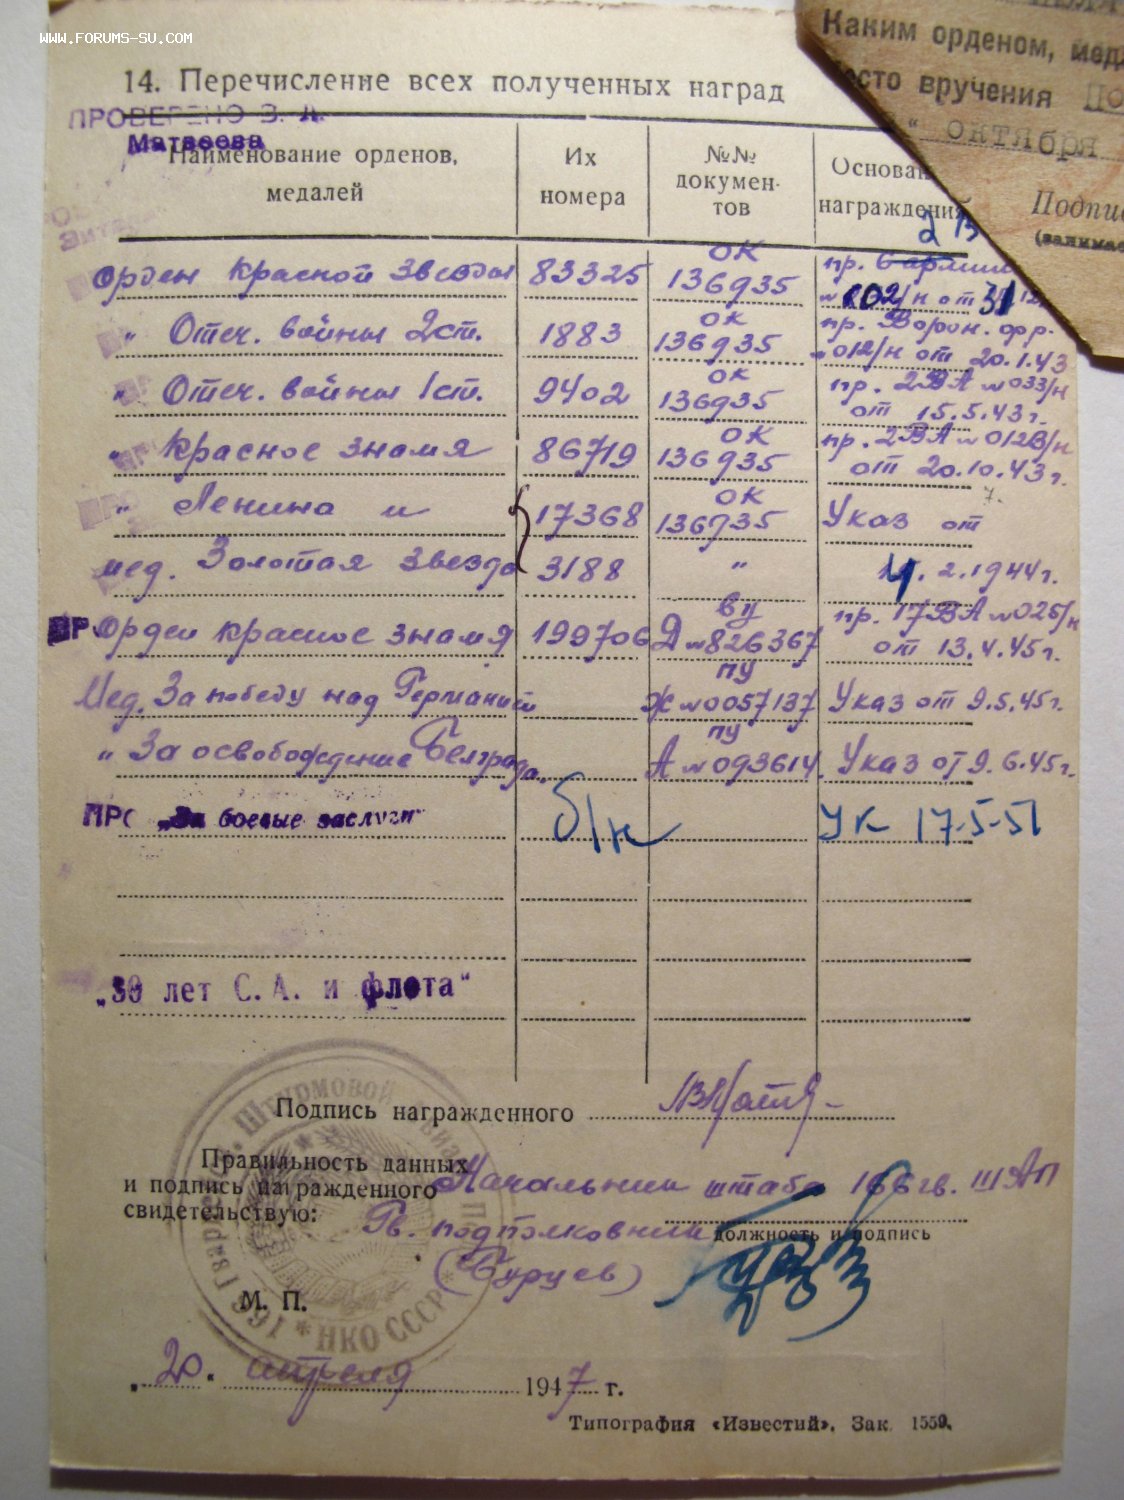 WWW.FORUMS-SU.COM
Каким орденом,
вручения
октября
14. Перечисление всех полученных наград
ПРОВЕРЕНО З. А.
Матвеева
Наименование орденов,
медалей
Их
номера
№№
докумен-
тов
награждений
2 В
Орден Красной Звезды 83325 ОК 136935 пр.
/н от 31
" Отеч. войны 2 ст. 1883 ОК 136935 пр. Ворон. фр.
012/н от 20.1.43
" Отеч. войны 1 ст. 9402 ОК 136935 пр. 2ВА №033/н
от 15.5.43г.
" Красное знамя 86719 ОК 136935 пр. 2ВА №012В/н
от 20.10.43г.
" Ленина и 17368 ОК 136935 Указ от
мед. Золотая Звезда 3188 " 4. 2.1944г.
Орден Красное знамя 199706 ВУ Д №826367 пр. 17ВА №025/н
от 13.4.45г.
Мед. За победу над Германией ПУ Ж №0057137 Указ от 9.5.45г.
" За освобождение Белграда. ПУ А №093614 Указ от 9.6.45г.
ПРО „За боевые заслуги“ б/н УК 17-5-51
„30 лет С. А. и флота“
Подпись награжденного
Правильность данных
и подпись награжденного
свидетельствую:
Начальник штаба 166 гв. ШАП
Гв. подполковник
должность и подпись
(Бурцев)
М. П.
166 Гвард. Штурмовой Авиа
НКО СССР
„20“ апреля 1947 г.
Типография «Известий». Зак. 1559.